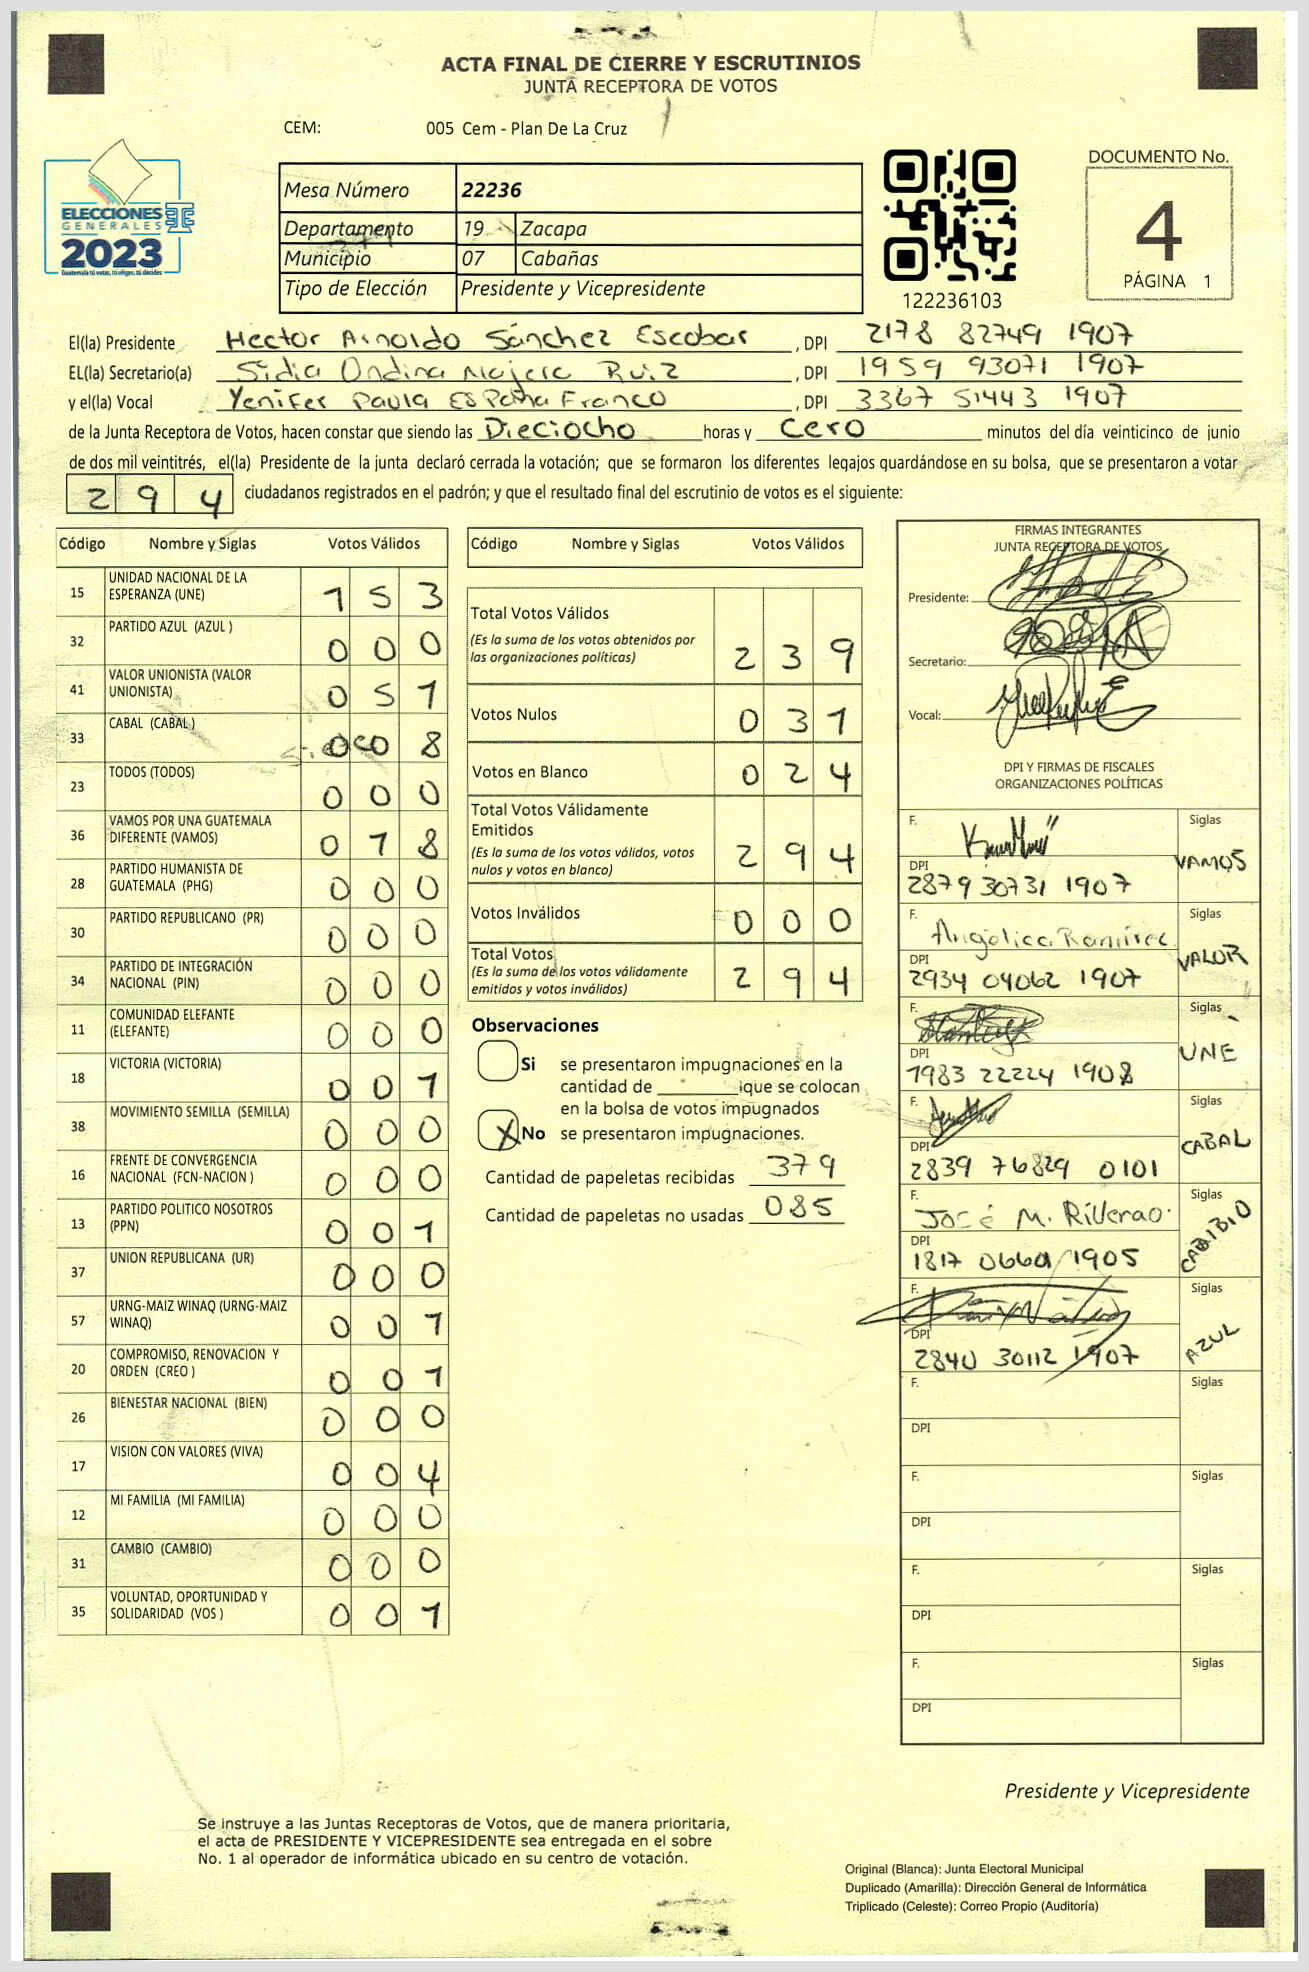 ACTA FINAL DE CIERRE Y ESCRUTINIOS
JUNTA RECEPTORA DE VOTOS
CEM: 005 Cem - Plan De La Cruz
ELECCIONES
GENERALES
2023
Guatemala tú votas, tú eliges, tú decides
Mesa Número 22236
Departamento 19 Zacapa
Municipio 07 Cabañas
Tipo de Elección Presidente y Vicepresidente
122236103
DOCUMENTO No.
4
PÁGINA 1
El(la) Presidente Hector Arnoldo Sánchez Escobar , DPI 2178 82749 1907
EL(la) Secretario(a) Sidia Ondina Majera Ruiz , DPI 1959 93071 1907
y el(la) Vocal Yenifer Paula España Franco , DPI 3367 51443 1907
de la Junta Receptora de Votos, hacen constar que siendo las Dieciocho horas y Cero minutos del día veinticinco de junio
de dos mil veintitrés, el(la) Presidente de la junta declaró cerrada la votación; que se formaron los diferentes legajos quardándose en su bolsa, que se presentaron a votar
294 ciudadanos registrados en el padrón; y que el resultado final del escrutinio de votos es el siguiente:
Código Nombre y Siglas Votos Válidos
15 UNIDAD NACIONAL DE LA ESPERANZA (UNE) 153
32 PARTIDO AZUL (AZUL ) 000
41 VALOR UNIONISTA (VALOR UNIONISTA) 051
33 CABAL (CABAL ) 008
23 TODOS (TODOS) 000
36 VAMOS POR UNA GUATEMALA DIFERENTE (VAMOS) 018
28 PARTIDO HUMANISTA DE GUATEMALA (PHG) 000
30 PARTIDO REPUBLICANO (PR) 000
34 PARTIDO DE INTEGRACIÓN NACIONAL (PIN) 000
11 COMUNIDAD ELEFANTE (ELEFANTE) 000
18 VICTORIA (VICTORIA) 001
38 MOVIMIENTO SEMILLA (SEMILLA) 000
16 FRENTE DE CONVERGENCIA NACIONAL (FCN-NACION ) 000
13 PARTIDO POLITICO NOSOTROS (PPN) 001
37 UNION REPUBLICANA (UR) 000
57 URNG-MAIZ WINAQ (URNG-MAIZ WINAQ) 001
20 COMPROMISO, RENOVACION Y ORDEN (CREO ) 001
26 BIENESTAR NACIONAL (BIEN) 000
17 VISION CON VALORES (VIVA) 004
12 MI FAMILIA (MI FAMILIA) 000
31 CAMBIO (CAMBIO) 000
35 VOLUNTAD, OPORTUNIDAD Y SOLIDARIDAD (VOS ) 001
Código Nombre y Siglas Votos Válidos
Total Votos Válidos
(Es la suma de los votos obtenidos por
las organizaciones políticas) 239
Votos Nulos 031
Votos en Blanco 024
Total Votos Válidamente
Emitidos
(Es la suma de los votos válidos, votos
nulos y votos en blanco) 294
Votos Inválidos 000
Total Votos
(Es la suma de los votos válidamente
emitidos y votos inválidos) 294
Observaciones
Si se presentaron impugnaciones en la
cantidad de ________ ique se colocan
en la bolsa de votos impugnados
X No se presentaron impugnaciones.
Cantidad de papeletas recibidas 379
Cantidad de papeletas no usadas 085
FIRMAS INTEGRANTES
JUNTA RECEPTORA DE VOTOS
Presidente:
Secretario:
Vocal:
DPI Y FIRMAS DE FISCALES
ORGANIZACIONES POLÍTICAS
F. Siglas VAMOS
DPI 2879 30731 1907
F. Angélica Ramírez Siglas VALOR
DPI 2934 04062 1907
F. Siglas UNE
DPI 1983 22224 1908
F. Siglas CABAL
DPI 2839 76829 0101
F. José M. Rivera Siglas
DPI 1817 1905
F. Siglas AZUL
DPI 2840 30112 1907
F. Siglas
DPI
F. Siglas
DPI
F. Siglas
DPI
F. Siglas
DPI
Presidente y Vicepresidente
Se instruye a las Juntas Receptoras de Votos, que de manera prioritaria,
el acta de PRESIDENTE Y VICEPRESIDENTE sea entregada en el sobre
No. 1 al operador de informática ubicado en su centro de votación.
Original (Blanca): Junta Electoral Municipal
Duplicado (Amarilla): Dirección General de Informática
Triplicado (Celeste): Correo Propio (Auditoría)